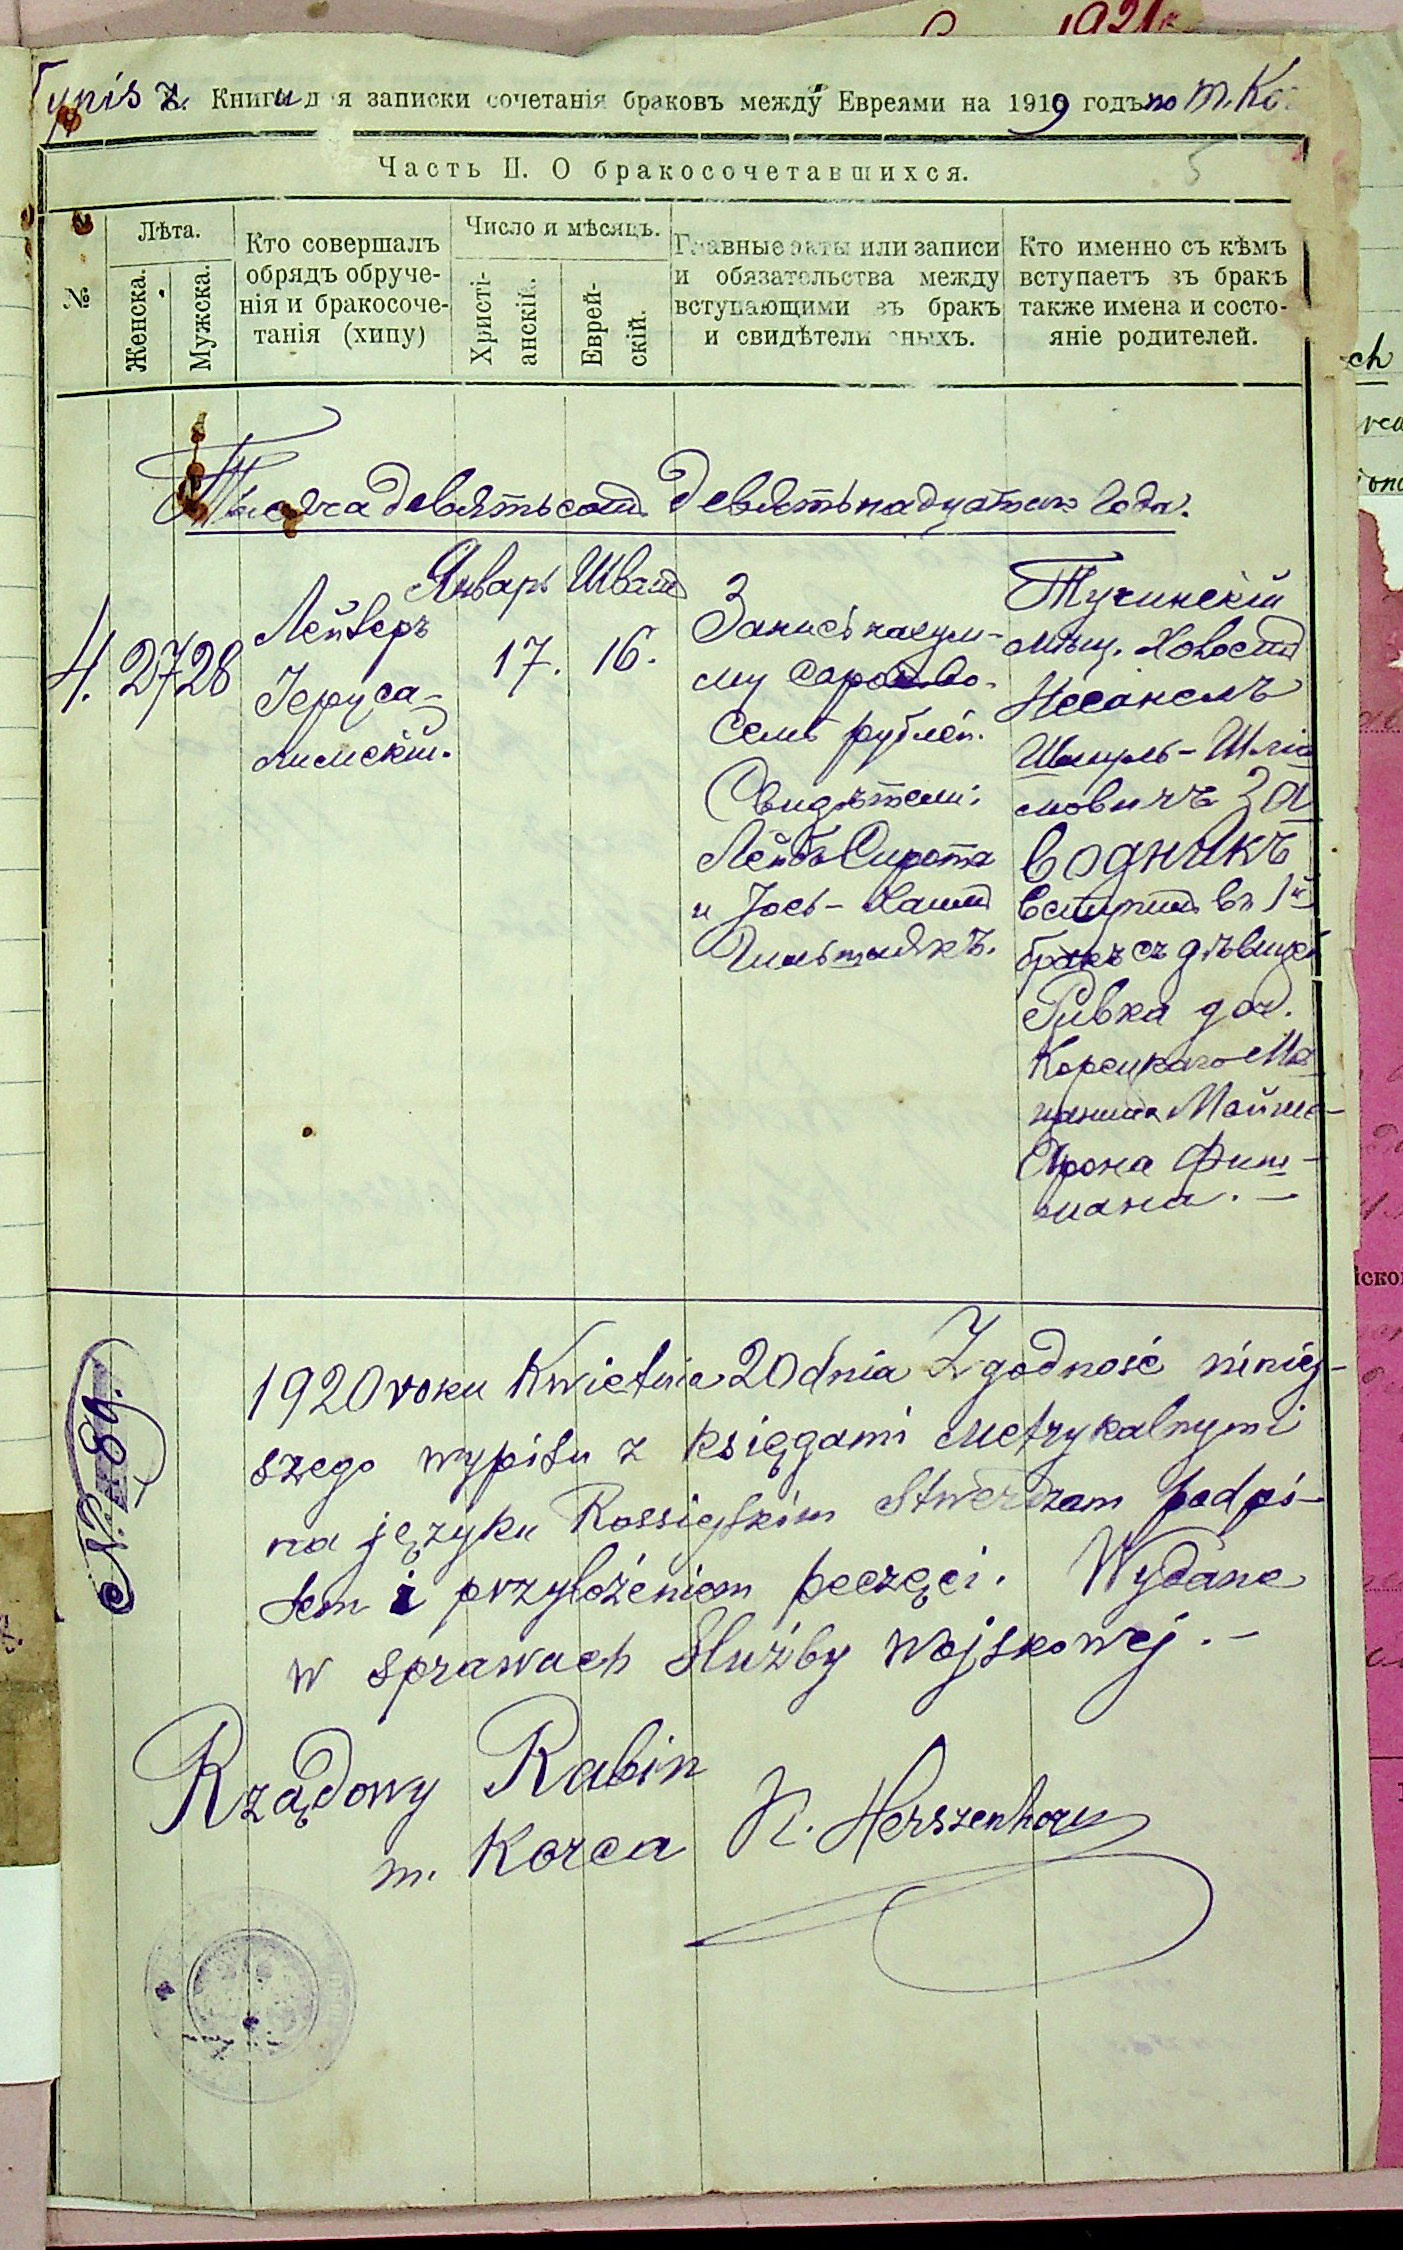 1921
Wypis z Книги для записки сочетанія браковъ между Евреями на 1919 годъ по m. Ko
Часть II. О бракосочетавшихся.
5
№
Лѣта.
Женска.
Мужска.
Кто совершалъ
обрядъ обруче-
нія и бракосоче-
танія (хипу)
Число и мѣсяцъ.
Христі-
анскій.
Еврей-
скій.
Главные акты или записи
и обязательства между
вступающими въ бракъ
и свидѣтели оныхъ.
Кто именно съ кѣмъ
вступаетъ въ бракъ
также имена и состо-
яніе родителей.
Тысяча девятьсотъ девятьнадцатаго года.
4.
27
28
Лейзеръ
Іеруса-
лимскій.
Январь
17.
Шватъ
16.
Запись на сум-
му сорокъ во-
семь рублей.
Свидѣтели:
Лейбъ Сирота
и Іось-Хаимъ
Гильштейкъ.
Тучинскій
мѣщ. Холостъ
Несанель
Шмуль-Шліо
мовичъ За
водникъ
вступилъ въ 1й
бракъ съ дѣвицей
Ривка доч.
Корецкаго Мѣ
щанина Мойше-
Арона Фиш-
мана. —
№ 189.
1920 roku Kwietnia 20 dnia Zgodność niniej-
szego wypisu z księgami Metrykalnymi
na języku Rossiejskim Stwerdzam podpi-
sem i przyłożeniem peczęci. Wydane
w sprawach Służby wojskowej. —
Rządowy Rabin
m. Korca N. Herszenhorn
ch